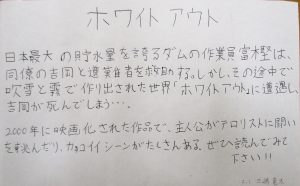 ホワイト アウト
日本最大の貯水量を誇るダムの作業員富樫は、
同僚の吉岡と遭難者を救助する。しかし、その途中で
吹雪と霧で作り出された世界「ホワイトアウト」に遭遇し、
吉岡が死んでしまう…。
2000年に映画化された作品で、主人公がテロリストに闘い
を挑んだり、カッコイイシーンがたくさんある。ぜひ読んでみて
下さい!!